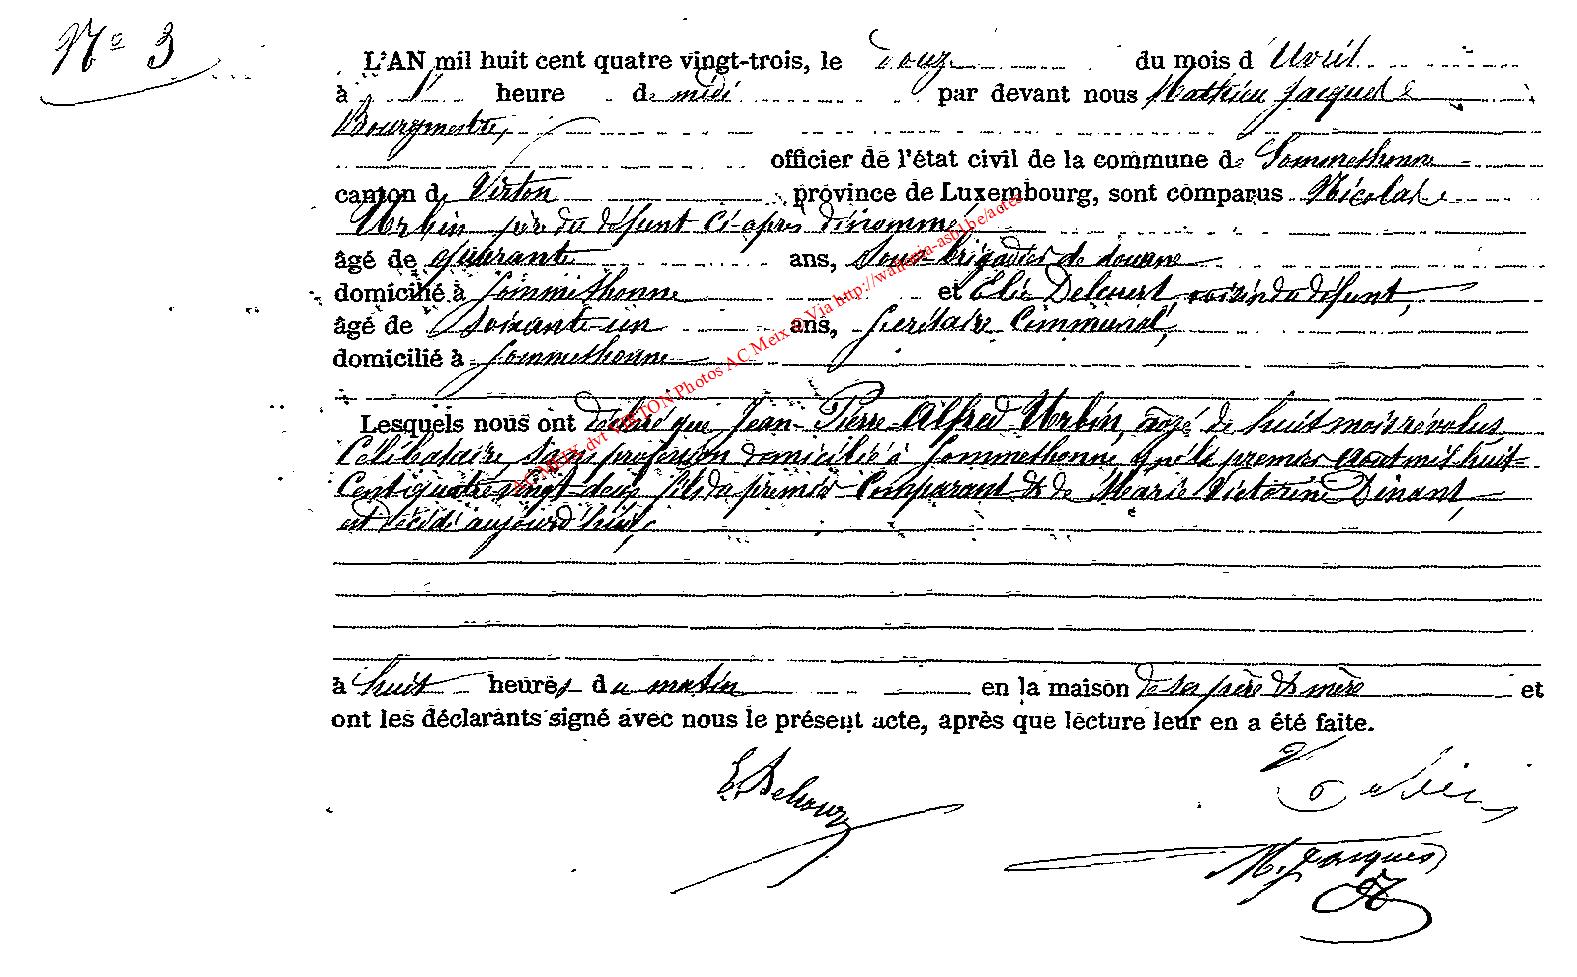 N° 3
L'AN mil huit cent quatre vingt-trois, le douze du mois d'Avril
à 1 heure de midi par devant nous Mathieu Jacques
Bourgmestre,
officier de l'état civil de la commune de Sommethonne
canton de Virton province de Luxembourg, sont comparus Nicolas
Urbin père du défunt ci-après dénommé
âgé de quarante ans, sous-brigadier de douane
domicilié à Sommethonne et Elie voisin du défunt,
âgé de soixante-un ans, Secrétaire Communal,
domicilié à Sommethonne
Lesquels nous ont déclaré que Jean-Pierre-Alfred Urbin, âgé de huit mois révolus,
Célibataire, sans profession domicilié à Sommethonne, y né le premier août mil huit-
cent quatre vingt-deux fils du premier Comparant & de Marie Victorine Dinant,
est décédé aujourd'hui,
à huit heures du matin en la maison de ses père & mère et
ont les déclarants signé avec nous le présent acte, après que lecture leur en a été faite.
Urbin
M. Jacques
AC MEIX-dvt VIRTON Photos AC Meix © Via http://wallonia-asbl.be/actes